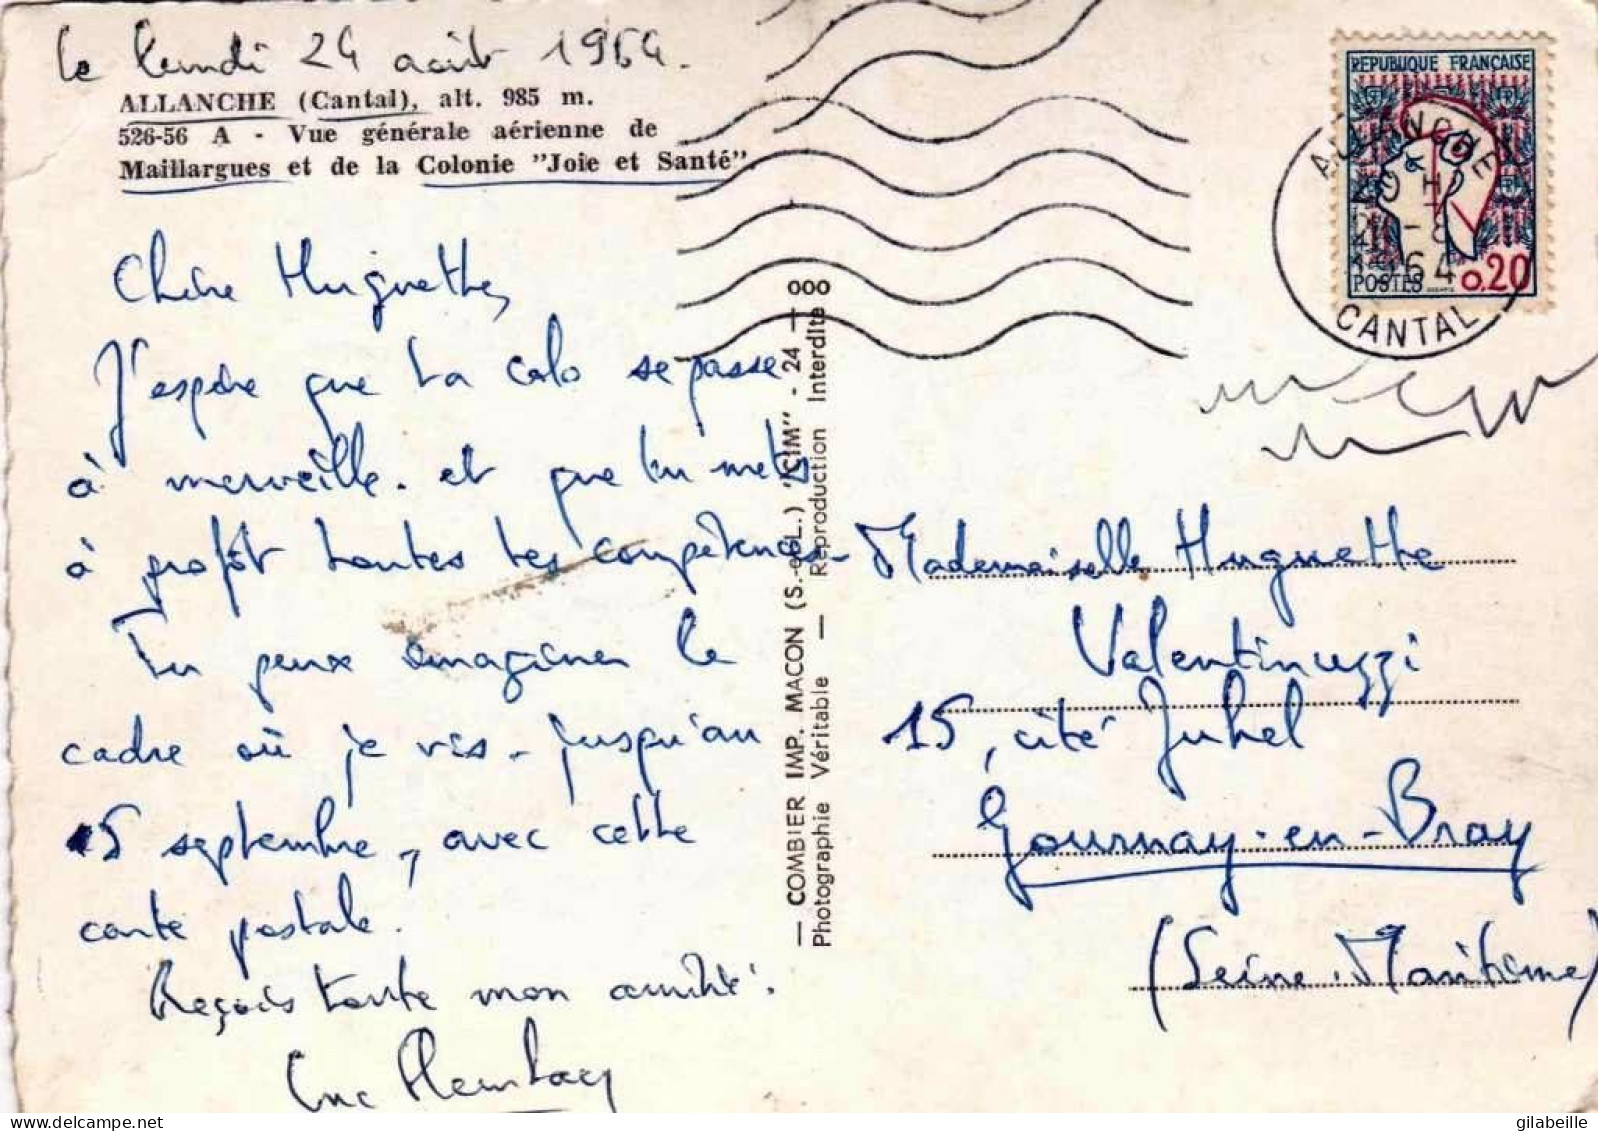 le lundi 24 août 1964.
ALLANCHE (Cantal), alt. 985 m.
526-56 A - Vue générale aérienne de
Maillargues et de la Colonie "Joie et Santé"
Chère Huguette,
J'espère que ta colo se passe
à merveille. et que tu mets
à profit toutes tes compétences.
Tu peux imaginer le
cadre où je vis - jusqu'au
15 septembre, avec cette
carte postale.
Reçois toute mon amitié.
Luc
— COMBIER IMP. MACON (S.-et-L.) "CIM" - 24 — 000
Photographie Véritable — Reproduction Interdite
REPUBLIQUE FRANÇAISE
POSTES 0,20
ALLANCHE
CANTAL
Mademoiselle Huguette
Valentinuzzi
15, cité Juhel
Gournay-en-Bray
(Seine-Maritime)
gilabeille